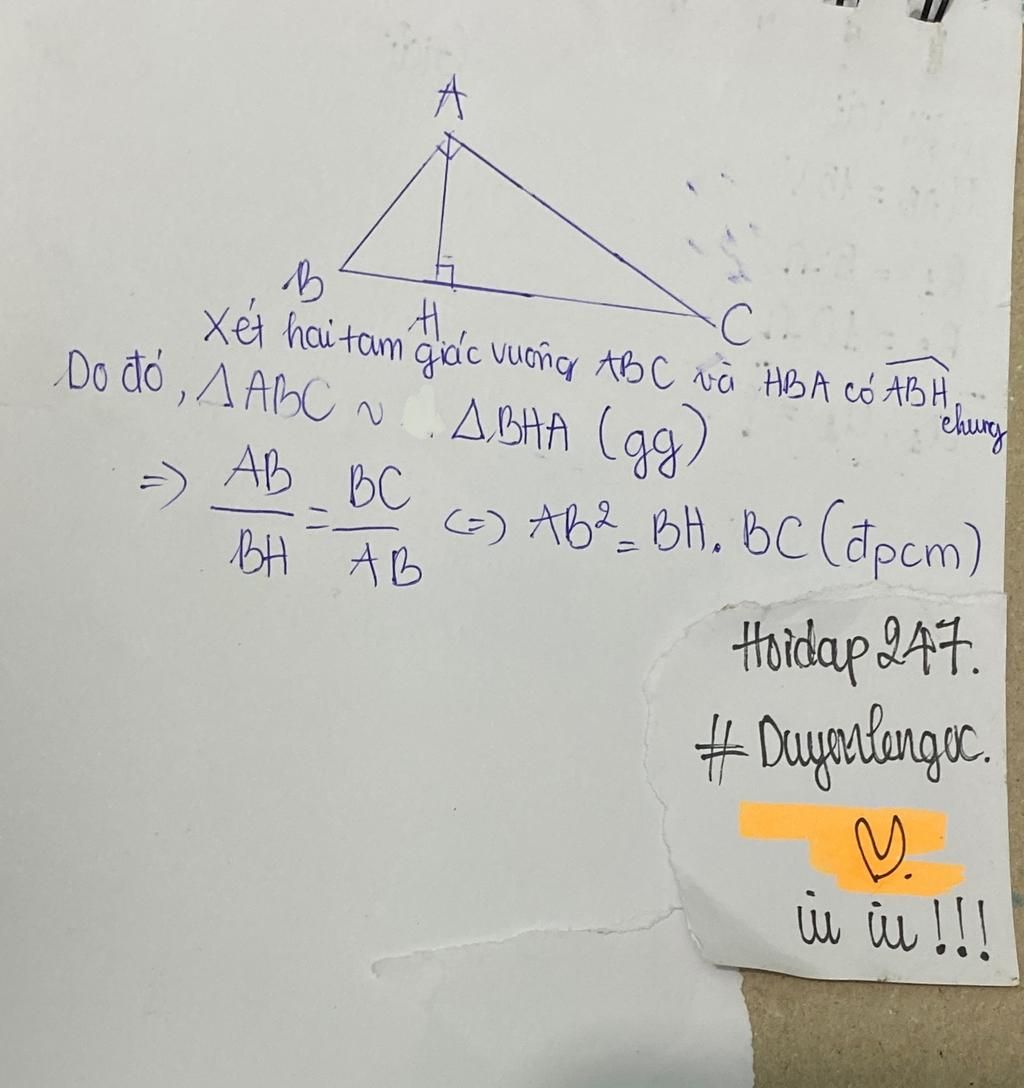 A
B
H
C
Xét hai tam giác vuông ABC và HBA có \widehat{ABH} chung
Do đó, △ABC ~ △BHA (gg)
=> AB/BH = BC/AB <=> AB² = BH. BC (đpcm)
Hoidap 247.
# Duyenlengoc.
iu iu !!!